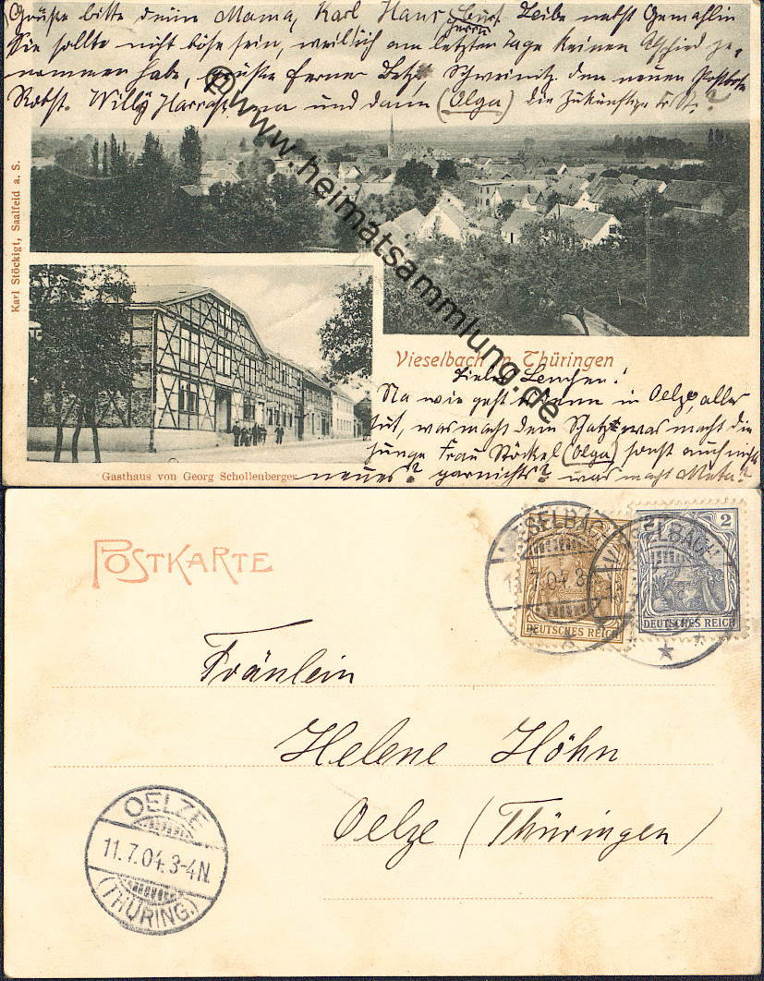 Grüße bitte deine Mama, Karl Hans, Leibe nebst Gemahlin
Herrn
Sie sollte nicht böse sein, weil ich am letzten Tage keinen Abschied ge-
nommen habe, grüße ferner Schweinitz den neuen Postbote
Robst. Willy und dann (Olga) die zukünftige
©www.heimatsammlung.de
Karl Stöckigt, Saalfeld a. S.
Vieselbach in Thüringen
Liebes Lenchen!
Na wie geht es denn in Oelze, alles
gut, was macht dein Schatz was macht die
junge Frau Stökel (Olga) sonst auch nichts
neues? garnichts? was macht Meta?
Gasthaus von Georg Schollenberger
POSTKARTE
VIESELBACH
11.7.04 8-
DEUTSCHES REICH
VIESELBACH
2
DEUTSCHES REICH
Fräulein
Helene Höhn
Oelze (Thüringen)
OELZE
11.7.04.3-4N.
(THÜRING.)